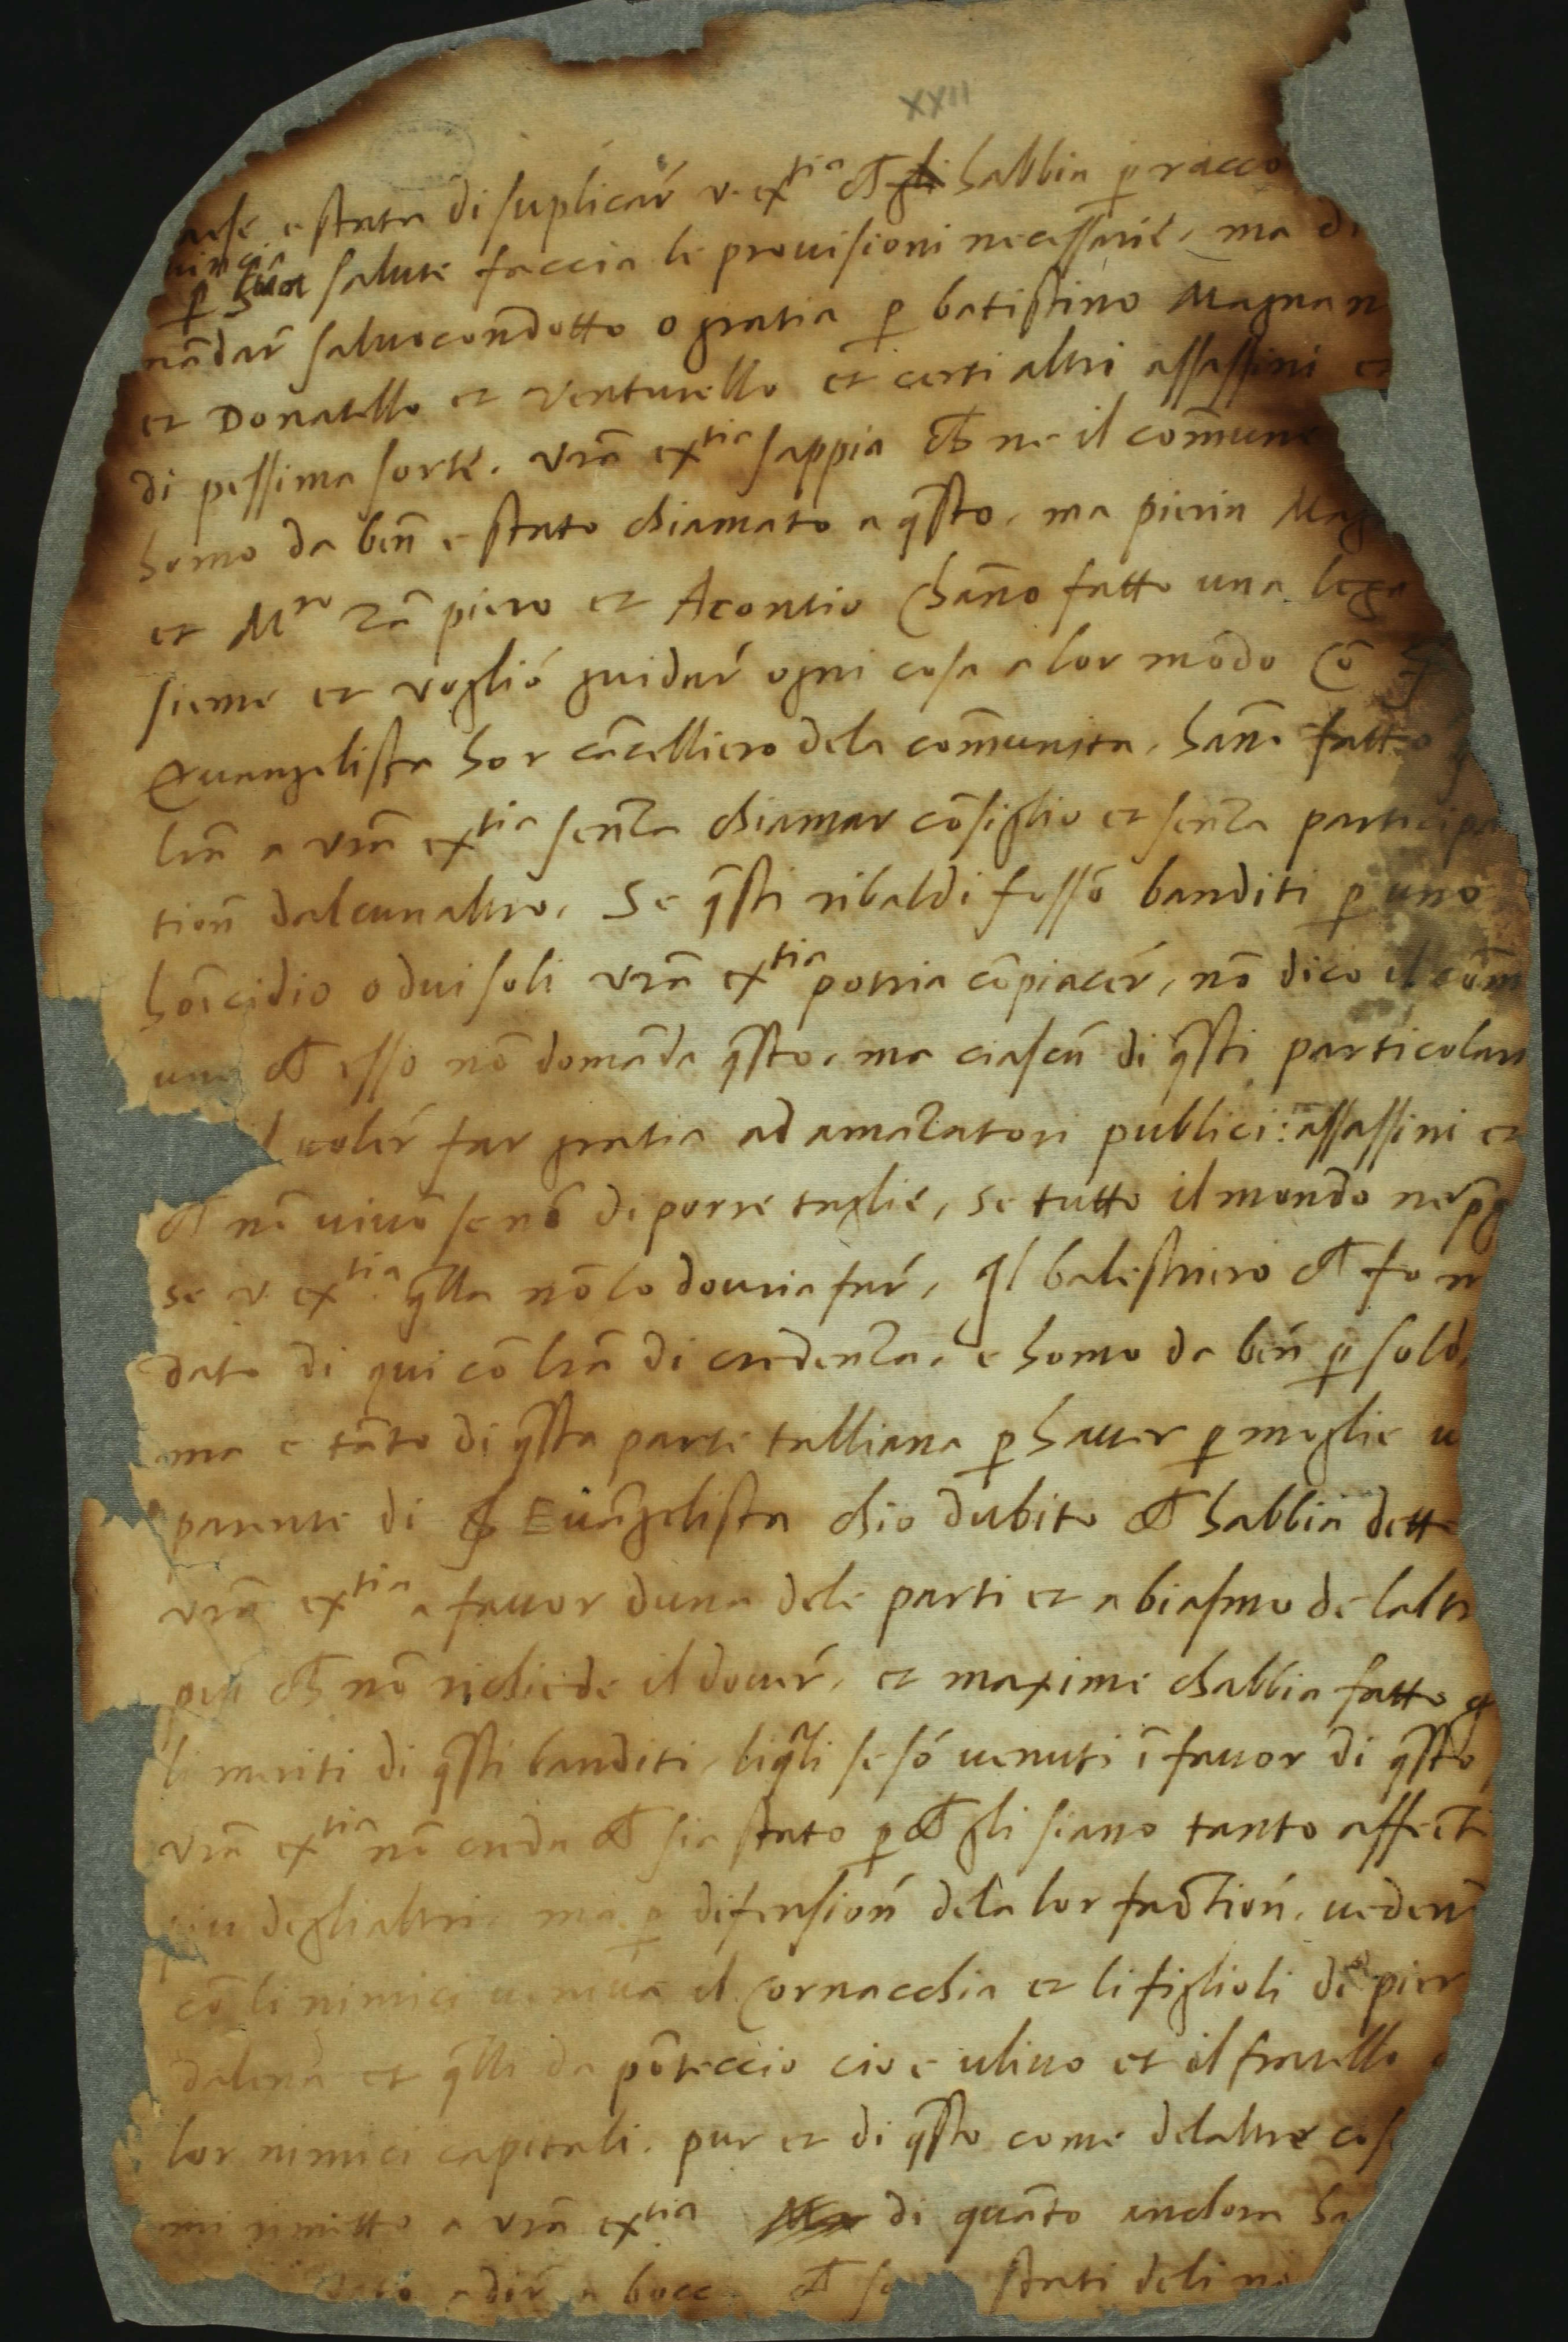 XXII
e stata di suplicar v. ex^tia ch gli habbia p racco
p sua salute faccia le provisioni necessarie, ma di
mādar salvocondotto o gratia p batistino Magnan
et Donatello et Venturello et certi altri assassini et
di pessima sorte. vrā ex^tia sappia ch ne il com̄une
homo da ben̄ e stato chiamato a q̄sto, ma pierin Mag
et M^ro zā piero et Acontio hāno fatto una lega
sieme et voglió guidar ogni cosa a lor modo cō
Evangelista hor cācelliero dela com̄unita, hān̄o fatto
lrā a vrā ex^tia senza chiamar cōsiglio et senza participa
tion̄ dalcunaltro, Se q̄sti ribaldi fossō banditi p uno
homicidio o dui soli vrā ex^tia potria cōpiacer, nō dico il cōm
une ch esso nō domāda q̄sto, ma ciascū di q̄sti particolari
il voler far gratia ad amazatori publici: assassini et
ch nō vivō se nō di porre taglie, se tutto il mondo ne p̄g
se v. ex^tia q̄lla nō lo dovria far, Ql balestriero ch fo m
dato di qui cō lrā di credenza, e homo da ben̄ p sold
ma e tāto di q̄sta parte talliana p haver p moglie u
parente di Evāgelista chio dubito ch habbia dett
vrā ex^tia a favor duna dele parti et a biasmo de laltr
piú ch nō richiede il dover, et maxime chabbia fatto
li meriti di q̄sti banditi, liq̄li se só venuti ī favor di q̄sto
vrā ex^tia nō creda ch sia stato p ch gli siano tanto affecti
piu deglialtri, ma p difension̄ dela lor faction̄, veden
cō li nimici veniva il Cornacchia et li figlioli di pier
dalena et q̄lli da pōteccio cio e ulivo et il fratello
lor nimici capitali. pur et di q̄sto come delaltre cose
mi rimetto a vrā ex^tia di quāto anchora ha
a dir a bocc ch so stati deli